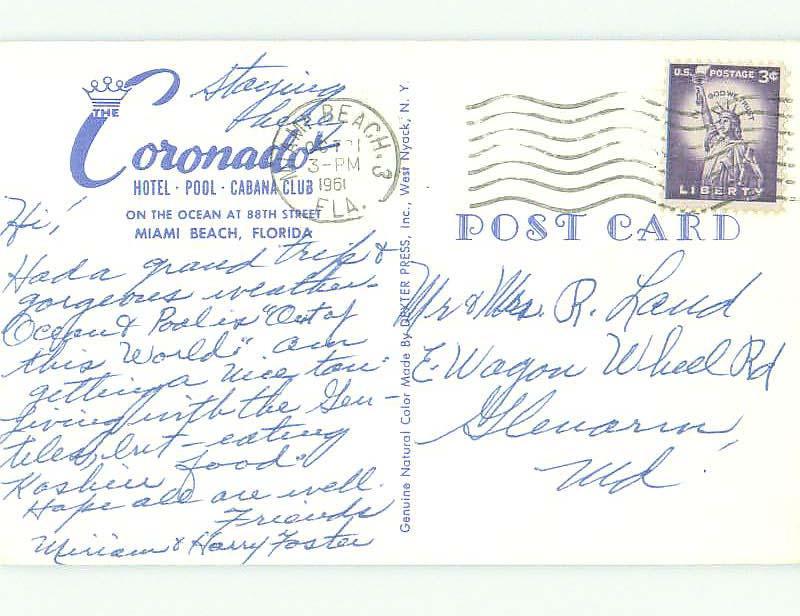 Staying
here
THE
Coronado
HOTEL · POOL · CABANA CLUB
ON THE OCEAN AT 88TH STREET
MIAMI BEACH, FLORIDA
Hi!
Had a grand trip &
gorgeous weather-
Ocean & Pool is "Out of
this World". Am
getting a nice tan-
living with the Gen-
tiles, but-eating
Koshier food.
Hope all are well.
Friends
Miriam & Harry Foster
Genuine Natural Color Made By DEXTER PRESS, Inc., West Nyack, N. Y.
MIAMI BEACH, 3
3-PM
1961
FLA.
U.S. POSTAGE 3¢
IN GOD WE TRUST
LIBERTY
POST CARD
Mr & Mrs. R. Land
E. Wagon Wheel Rd
Glenarm,
Md.